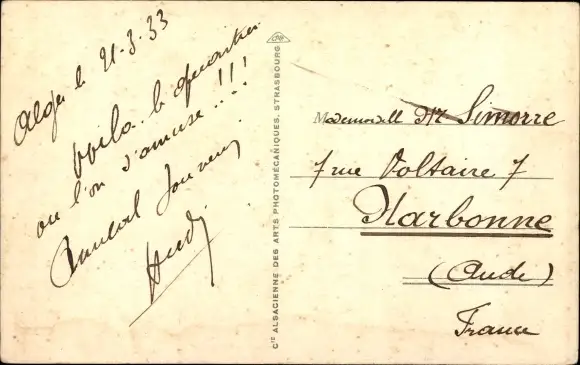 Alger le 21-3-33
Voila le quartier
ou l'on s'amuse..!!!
Amical Souvenir
CAP
Cie ALSACIENNE DES ARTS PHOTOMÉCANIQUES, STRASBOURG
Mademoiselle Simorre
7 rue Voltaire 7
Narbonne
(Aude)
France